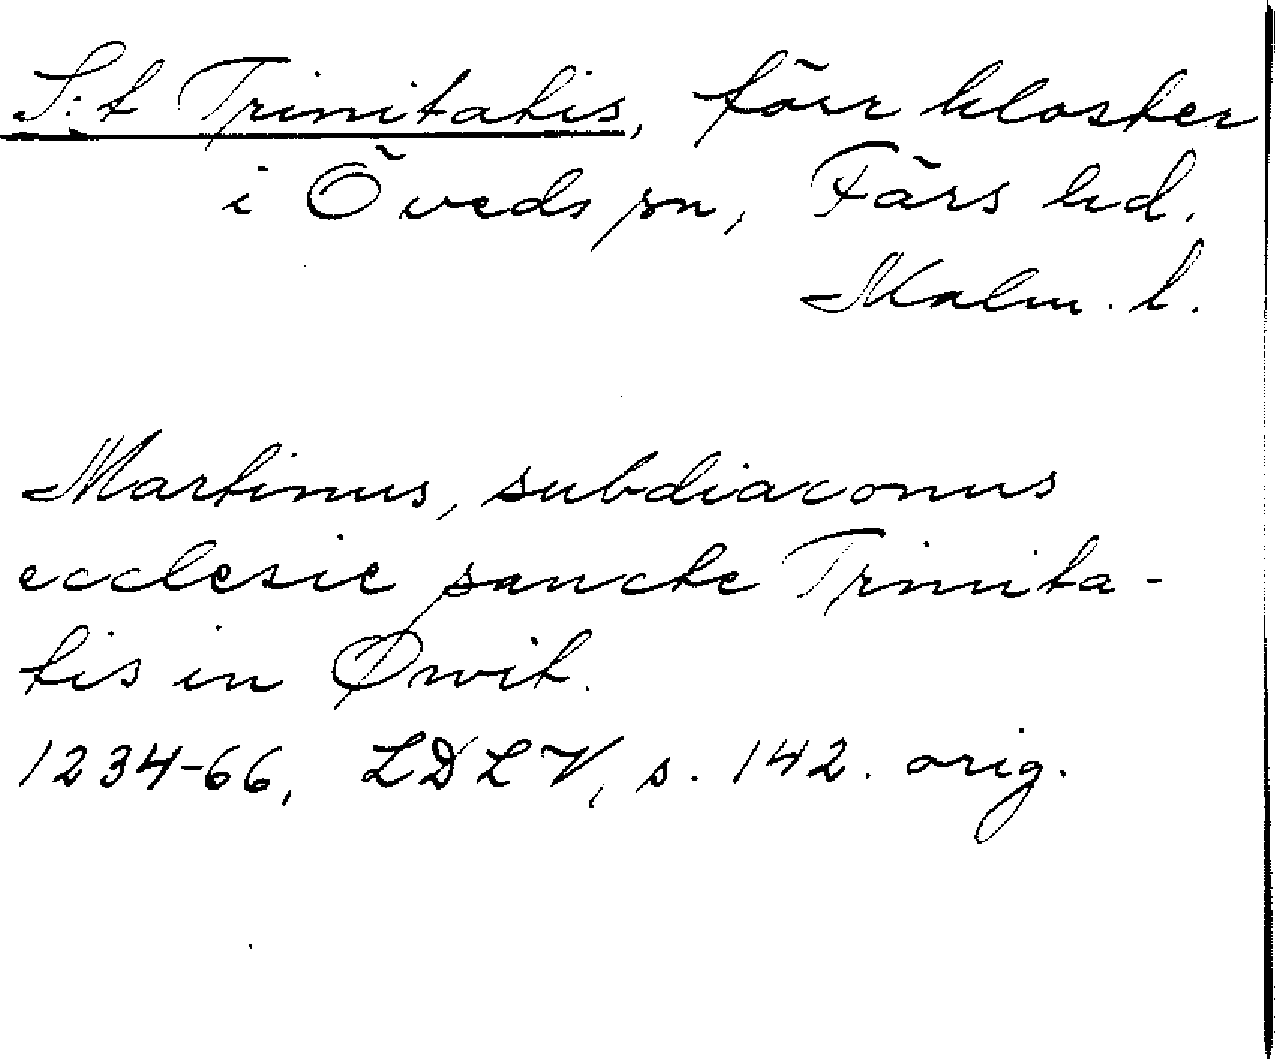 S:t Trinitatis, förr kloster
i Öveds sn, Färs hd.
Malm. l.
Martinus, subdiaconus
ecclesie sancte Trinita-
tis in Øwit.
1234-66, LDLV, s. 142. orig.